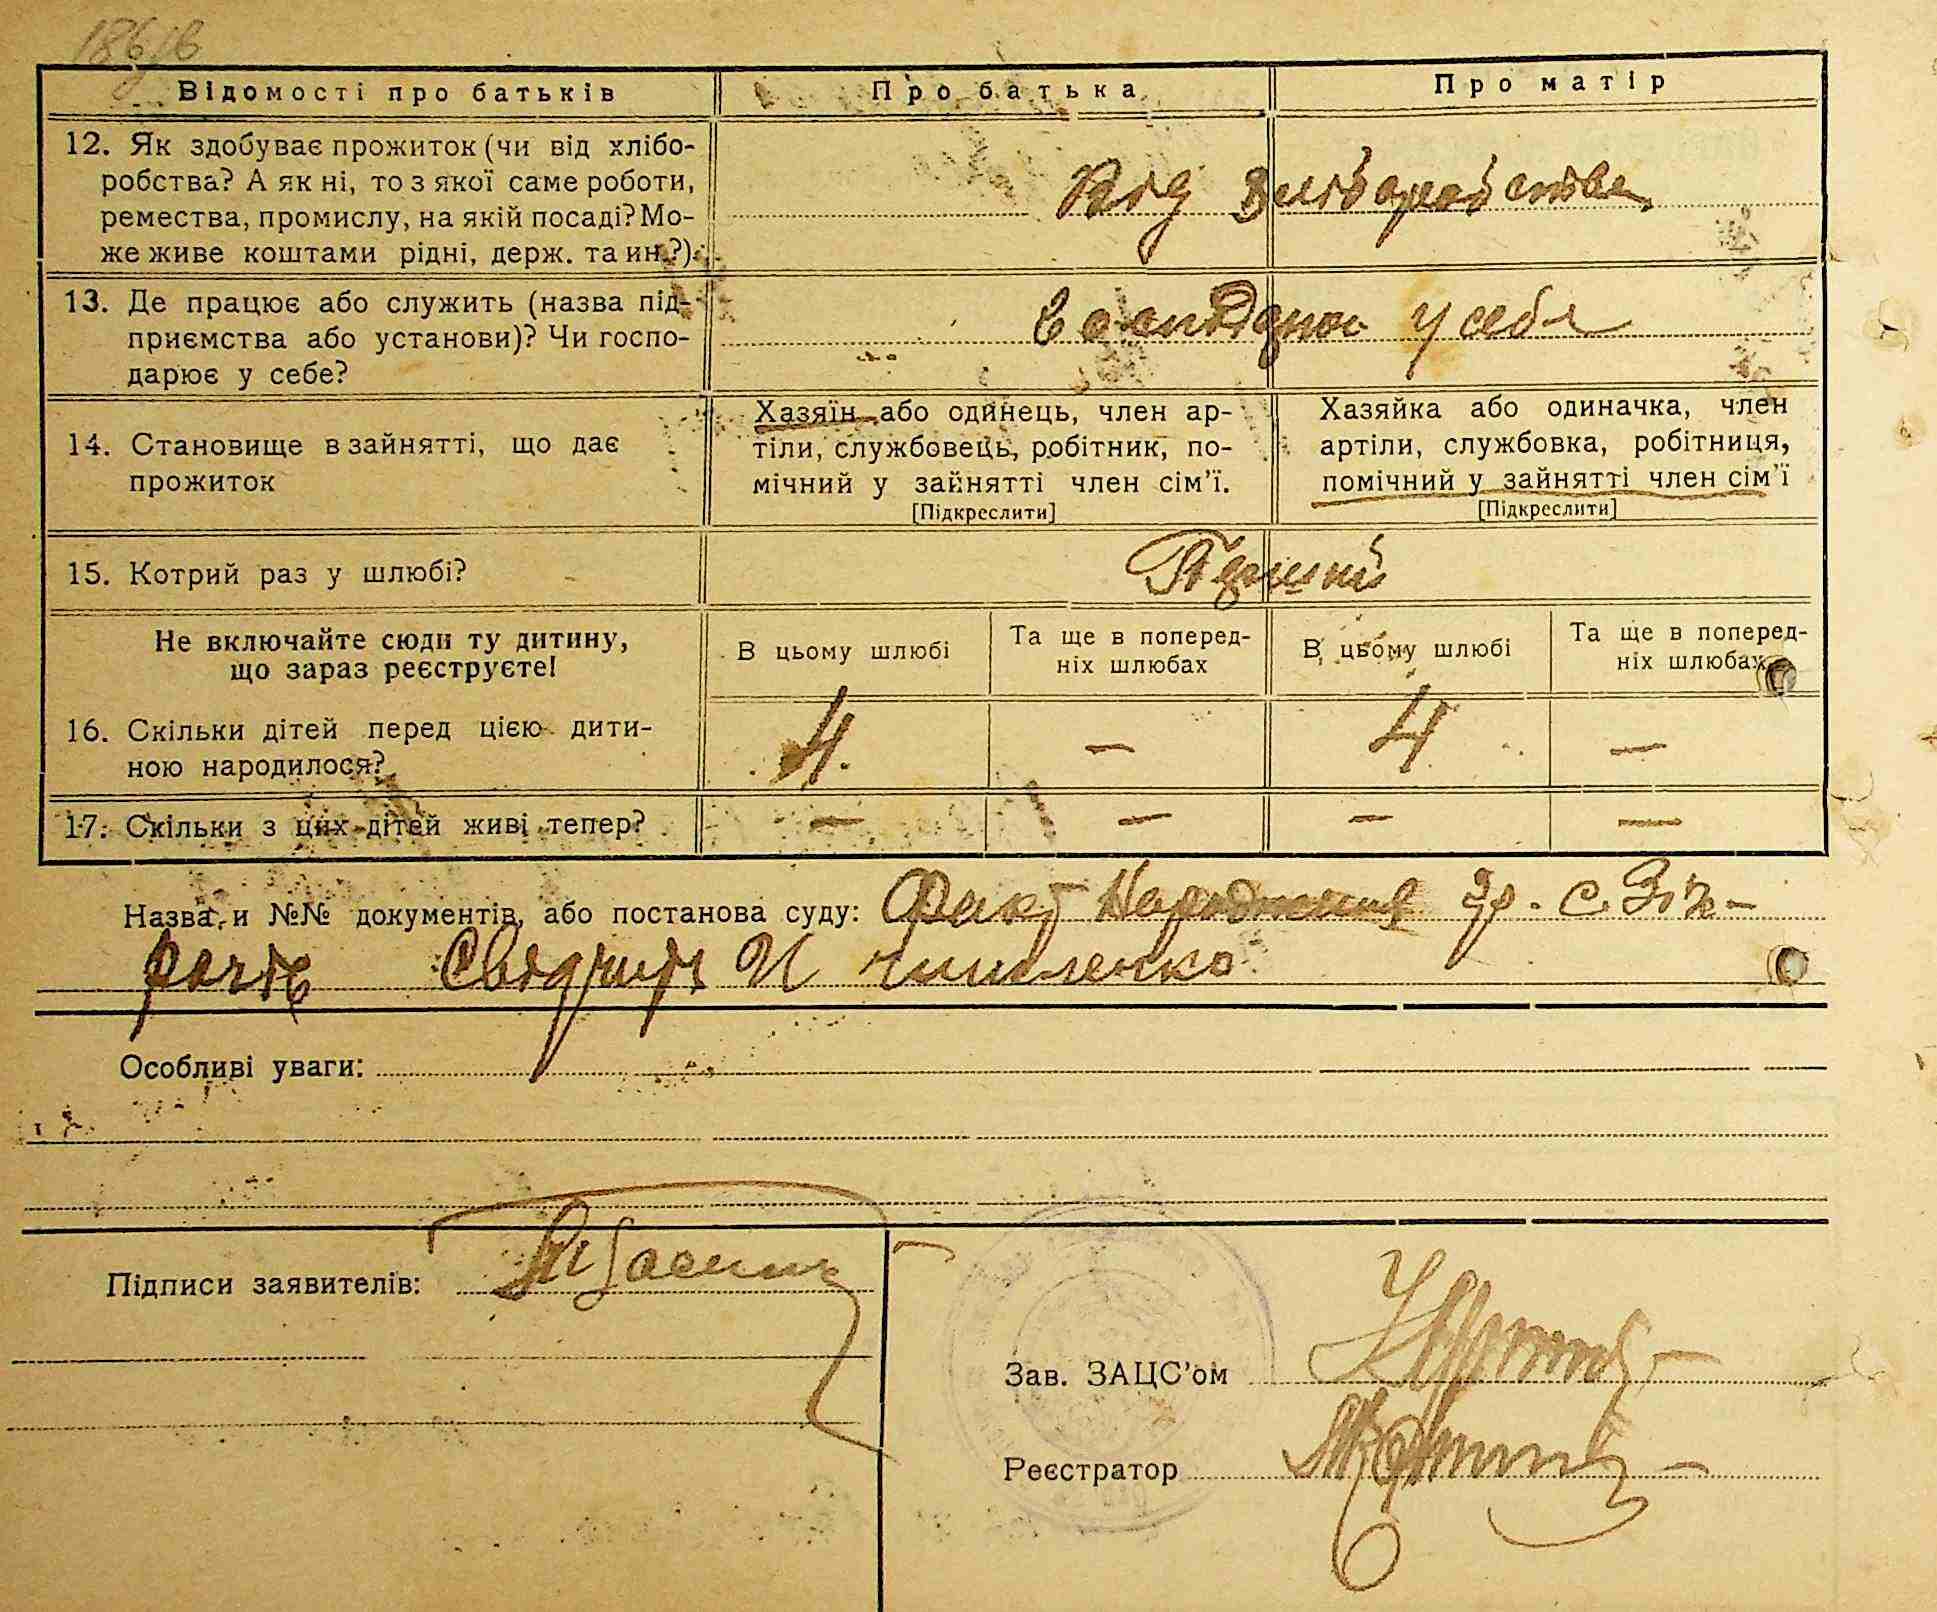 Відомості про батьків
Про батька
Про матір
12. Як здобуває прожиток (чи від хлібо-
робства? А як ні, то з якої саме роботи,
ремества, промислу, на якій посаді? Мо-
же живе коштами рідні, держ. та ин.?)
Від
13. Де працює або служить (назва під-
приємства або установи)? Чи госпо-
дарює у себе?
у себя
14. Становище в зайнятті, що дає
прожиток
Хазяїн або одинець, член ар-
тіли, службовець, робітник, по-
мічний у зайнятті член сім'ї.
[Підкреслити]
Хазяйка або одиначка, член
артіли, службовка, робітниця,
помічний у зайнятті член сім'ї
[Підкреслити]
15. Котрий раз у шлюбі?
Не включайте сюди ту дитину,
що зараз реєструєте!
В цьому шлюбі
Та ще в поперед-
ніх шлюбах
В цьому шлюбі
Та ще в поперед-
ніх шлюбах
16. Скільки дітей перед цією дити-
ною народилося?
4. — 4 —
17. Скільки з цих дітей живі тепер?
— — — —
Назва и №№ документів, або постанова суду: Факт Народження гр. с.
Особливі уваги:
Підписи заявителів:
Зав. ЗАЦС'ом
Реєстратор